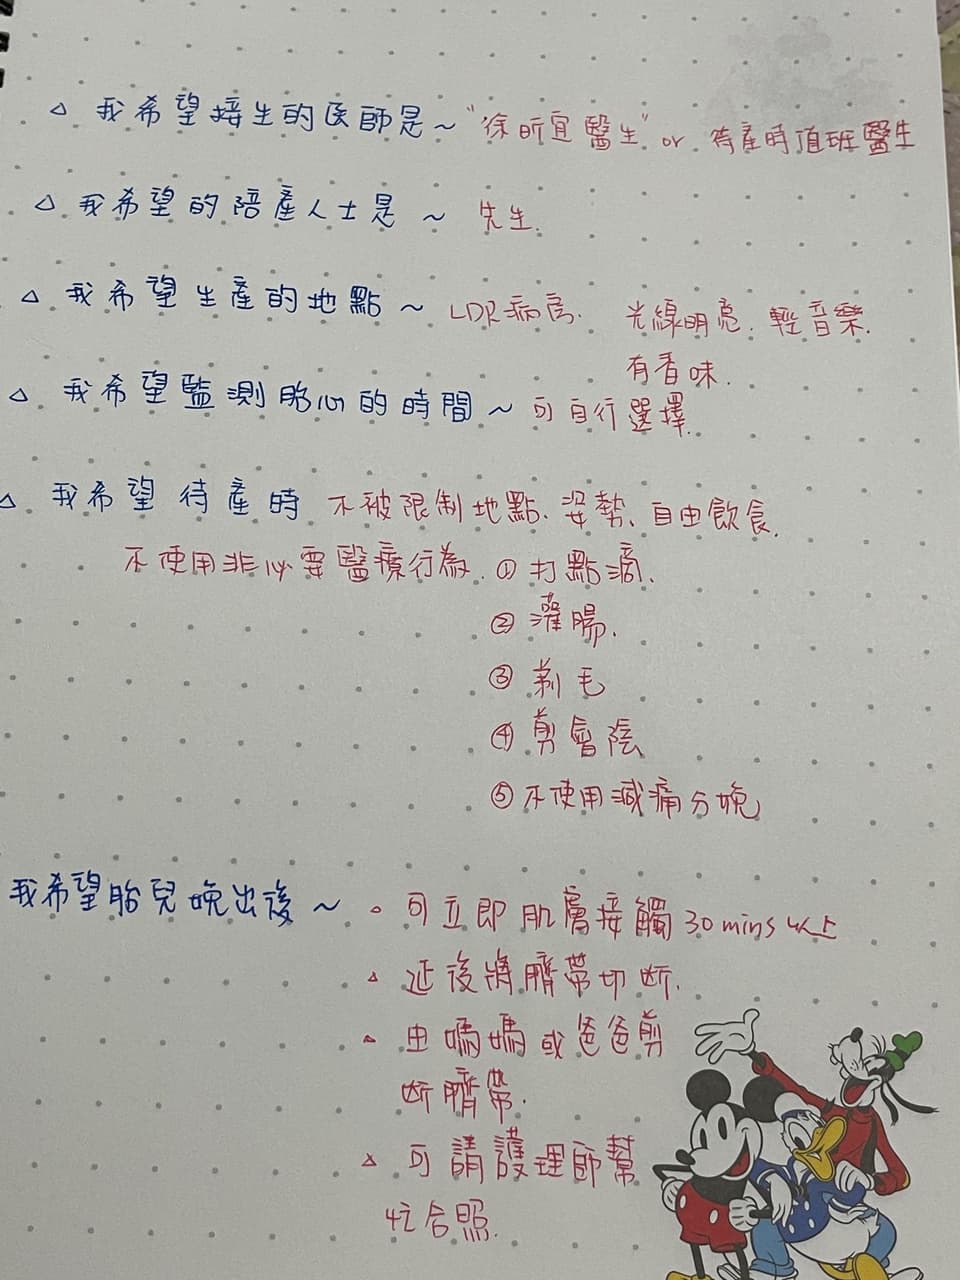 △ 我希望接生的医師是～"徐昕宜醫生" or 待產時值班醫生
△ 我希望的陪產人士是 ～ 先生.
△ 我希望生產的地點～ LDR病房. 光線明亮. 輕音樂.
有香味.
△ 我希望監測胎心的時間～可自行選擇.
△ 我希望 待產時 不被限制地點、姿勢、自由飲食.
不使用非必要醫療行為. ①打點滴.
② 灌腸.
③ 剃毛
④ 剪會陰
⑤ 不使用減痛分娩
我希望胎兒娩出後～ △ 可立即肌膚接觸 30 mins 以上
△ 延後將臍帶切斷.
△ 由媽媽或爸爸剪
斷臍帶.
△ 可請護理師幫
忙合照.